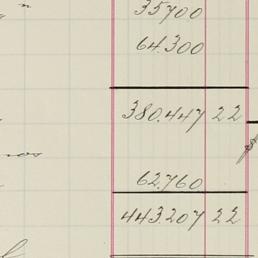 n 35700
64.300
380.447 22
ros 62.760
443.207 22